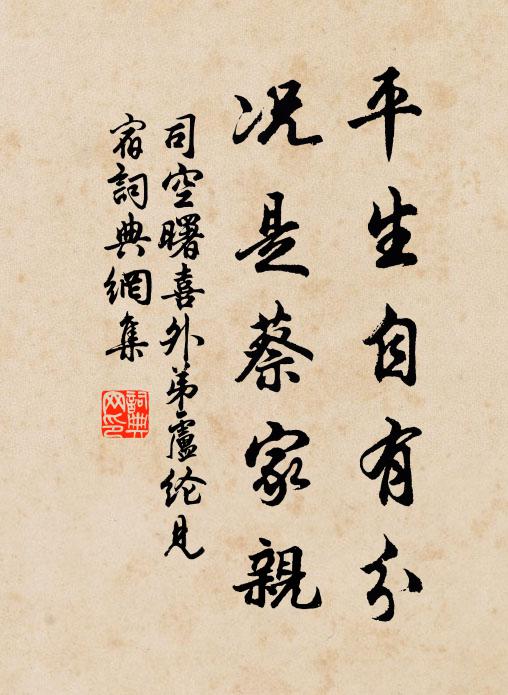 平生自有分
况是蔡家親
司空曙喜外弟盧纶見
宿詞典網集
詞典
网印